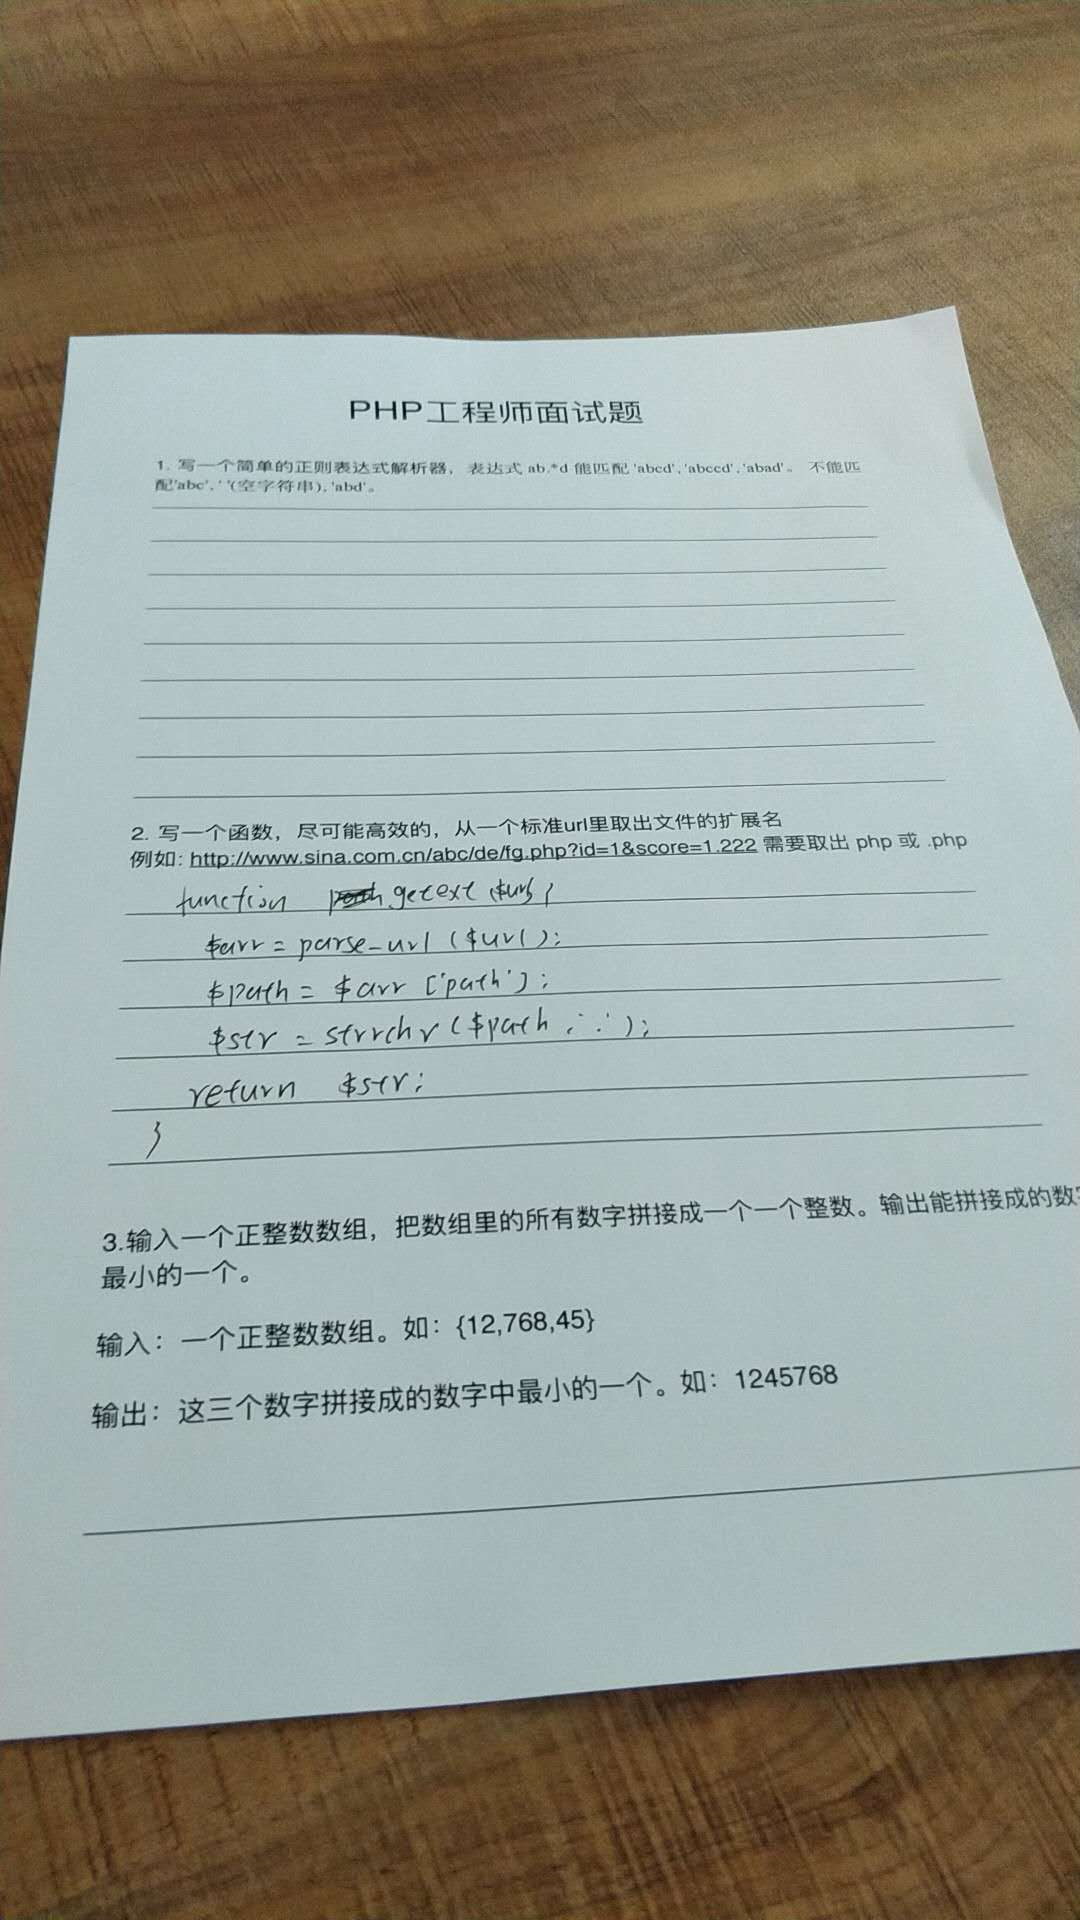 PHP工程师面试题
1. 写一个简单的正则表达式解析器，表达式 ab.*d 能匹配 'abcd','abccd','abad'。 不能匹
配'abc', ' '(空字符串), 'abd'。
2. 写一个函数，尽可能高效的，从一个标准url里取出文件的扩展名
例如: http://www.sina.com.cn/abc/de/fg.php?id=1&score=1.222 需要取出 php 或 .php
function getext ($url) {
$arr = parse_url ($url);
$path = $arr ['path'];
$str = strrchr ($path, '.');
return $str;
}
3.输入一个正整数数组，把数组里的所有数字拼接成一个一个整数。输出能拼接成的数
最小的一个。
输入：一个正整数数组。如：{12,768,45}
输出：这三个数字拼接成的数字中最小的一个。如：1245768